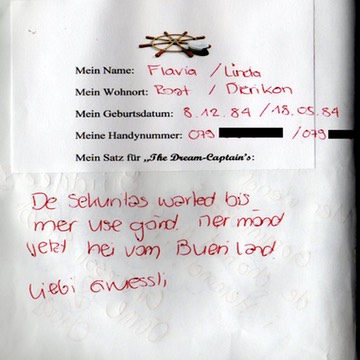 Mein Name: Flavia / Linda
Mein Wohnort: Root / Dierikon
Mein Geburtsdatum: 8.12.84 / 18.05.84
Meine Handynummer: 079 / 079
Mein Satz für „The Dream-Captain's:
De Sekuntas warted bis
mer use gönd. Mer mönd
jetzt hei vom Bueri land.
Liebi Grüessli